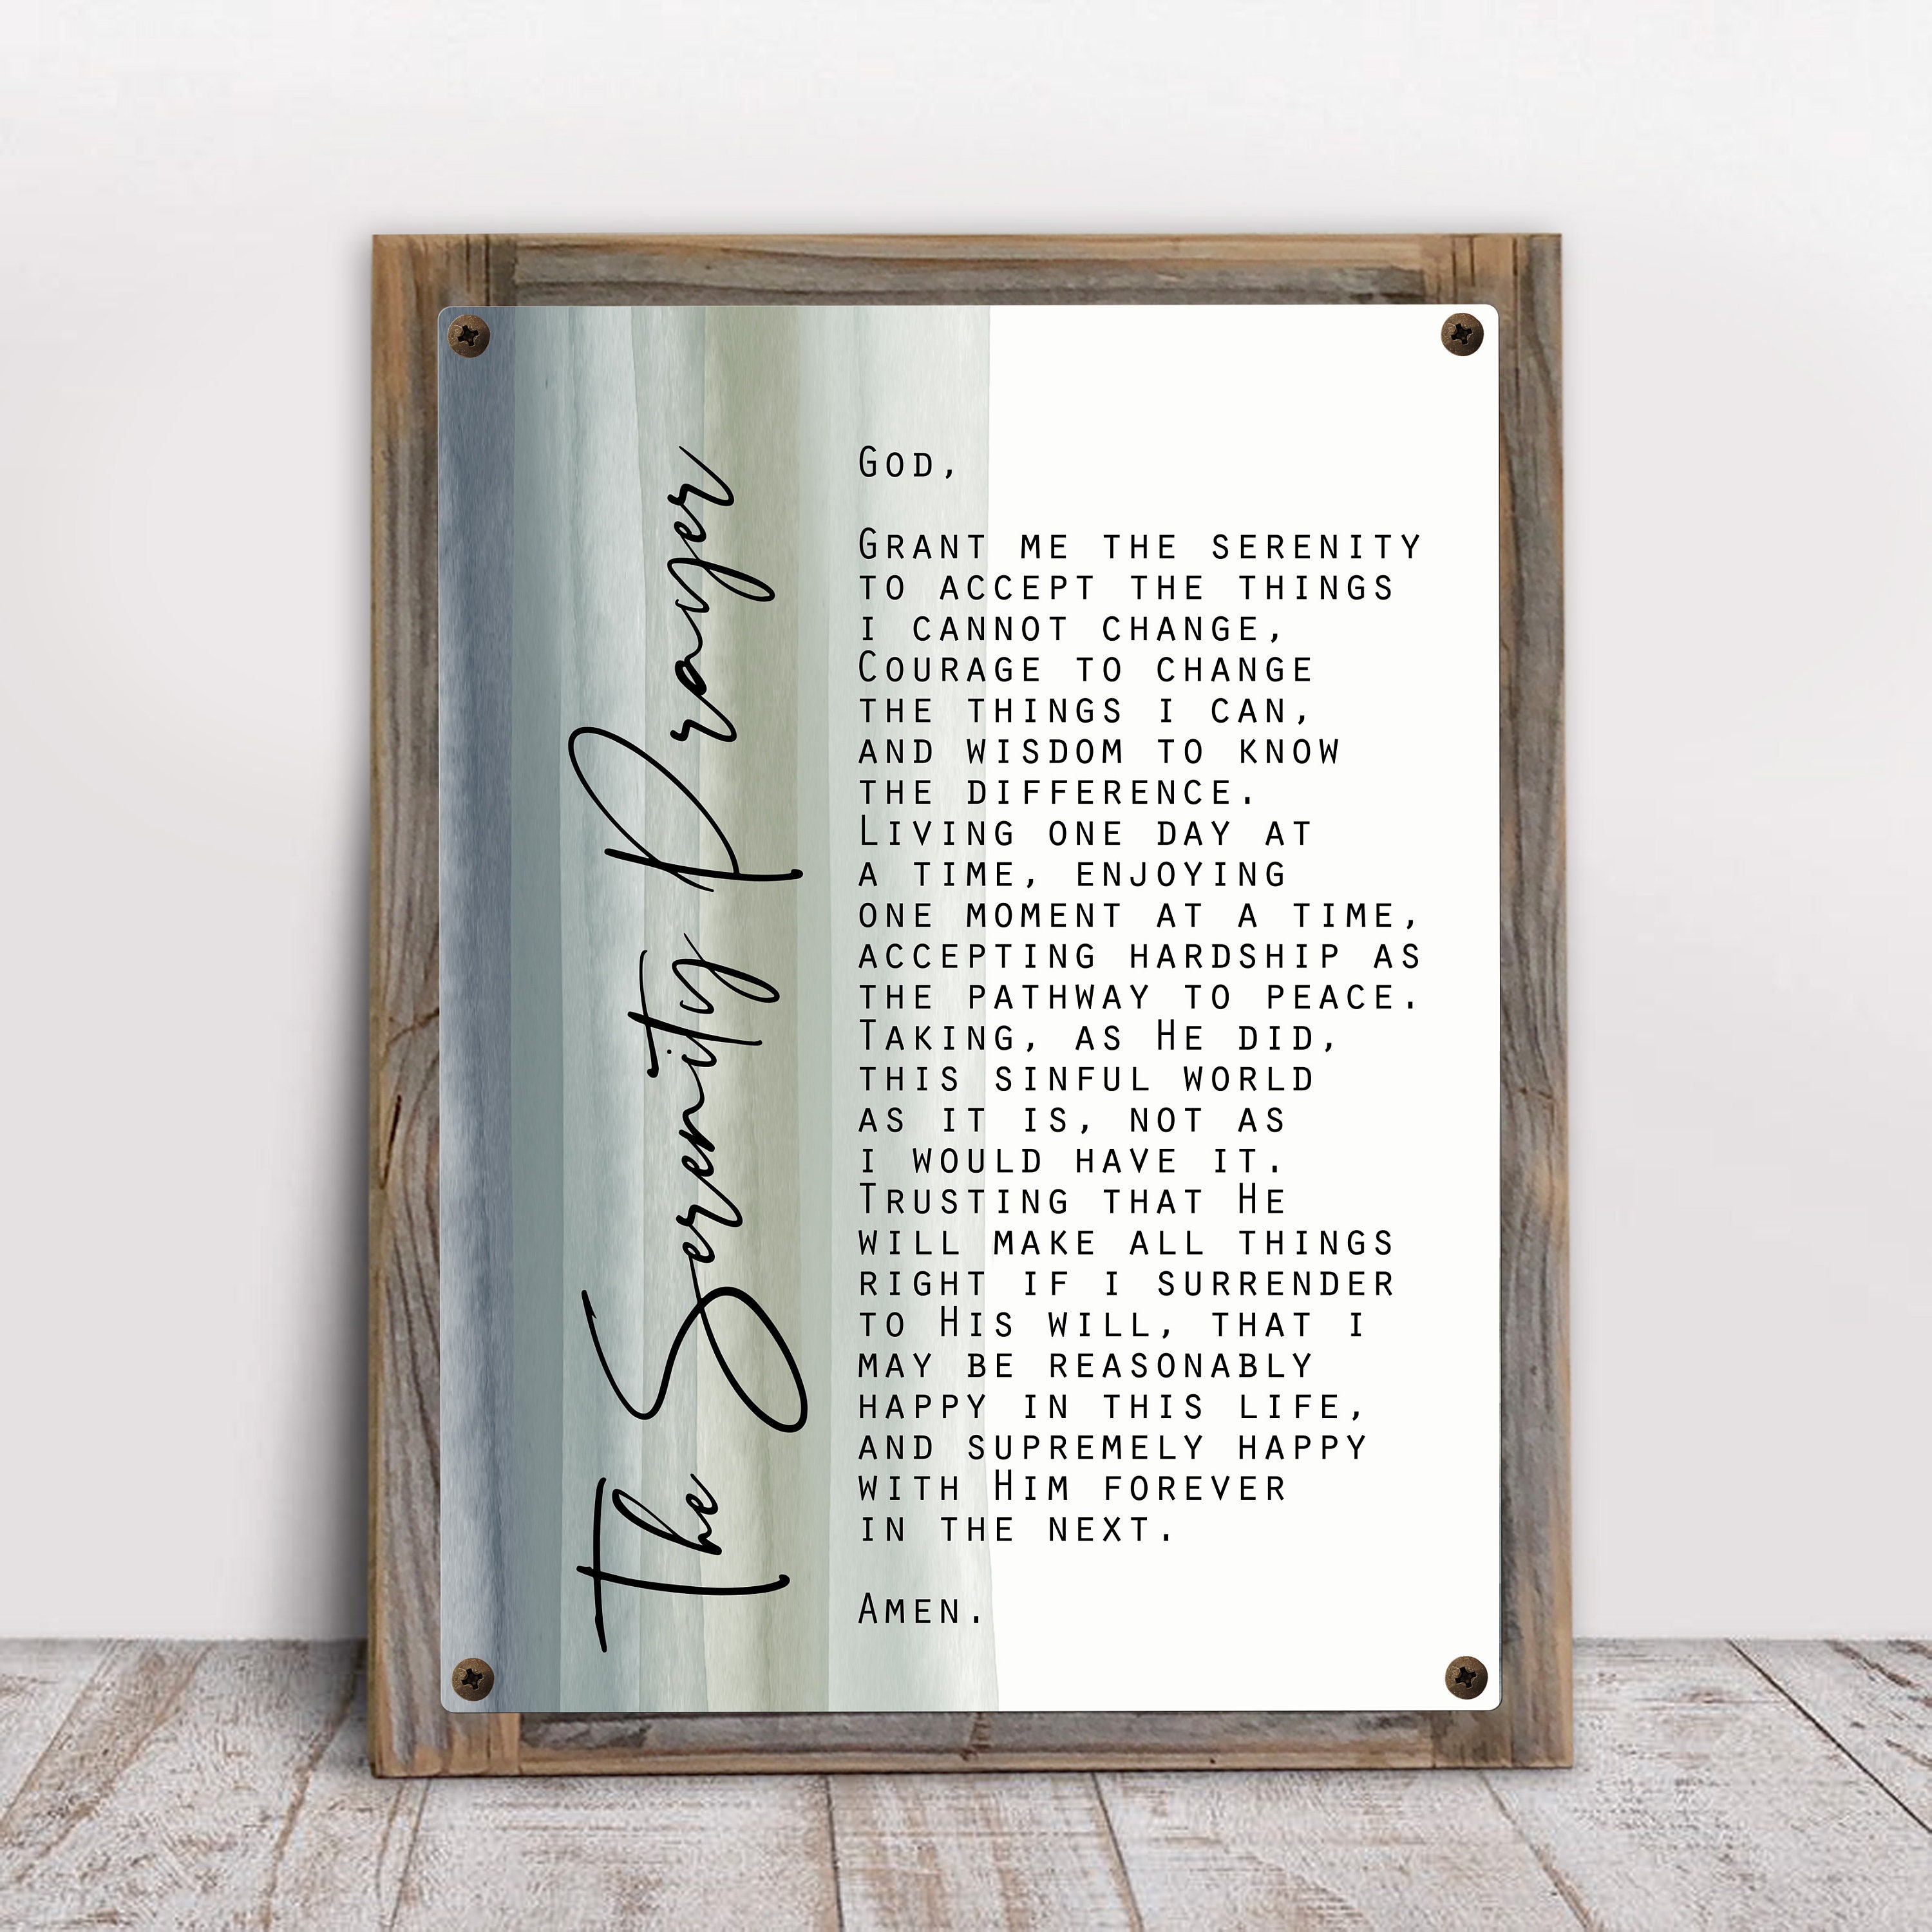 The Serenity Prayer
God,
Grant me the serenity
to accept the things
I cannot change,
Courage to change
the things I can,
and wisdom to know
the difference.
Living one day at
a time, enjoying
one moment at a time,
accepting hardship as
the pathway to peace.
Taking, as He did,
this sinful world
as it is, not as
I would have it.
Trusting that He
will make all things
right if I surrender
to His will, that I
may be reasonably
happy in this life,
and supremely happy
with Him forever
in the next.
Amen.